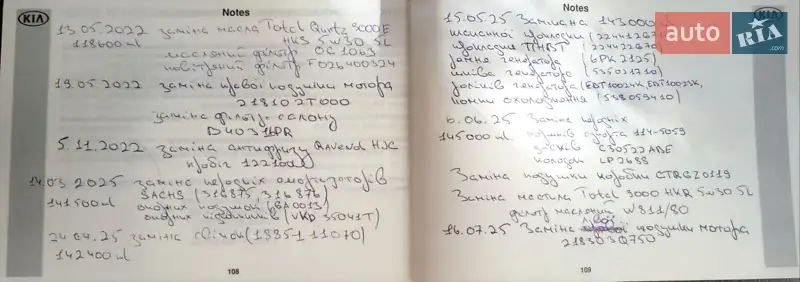 Notes
KIA
13.05.2022 заміна масла Total Qurtz 9000E
118600 км HKS 5w30 5L
масляний фільтр OC 1063
повітряний фільтр F026400324
19.05.2022 заміна правої подушки мотора
218102T000
заміна фільтру салону
B4031PR
5.11.2022 заміна антифризу Ravenol HJC
пробіг 122100
14.03.2025 заміна передніх амортизаторів
SACHS (316875, 316876)
141500 км опорних подушок (BA0013)
опорних підшипників (VKD 35041T)
24.04.25 заміна свічок (18851 11070)
142400 км
108
Notes
KIA
15.05.25 Замінена 143000
клапанної прокладки
прокладка ПНВТ
ремня генератора (6PK2125)
шківа генератора
роликів генератора
помпи охолодження
6.06.25 Заміна передніх
145000 км 114-5059
дисків C30522ABE
колодок LP2688
Заміна подушки коробки CTRGZ0119
Заміна мастила Total 9000 HKR 5w30 5L
фільтр масляний W811/80
16.07.25 Заміна лівої подушки мотора
218303Q750
109
auto
RIA
.com